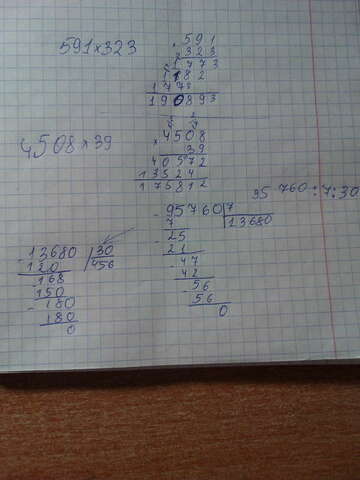 591×323
591
323
1773
1182
1773
190893
4508×39
4508
39
40572
13524
175812
95760:7:30
95760 7
7 13680
25
21
47
42
56
56
0
13680 30
120 456
168
150
180
180
0